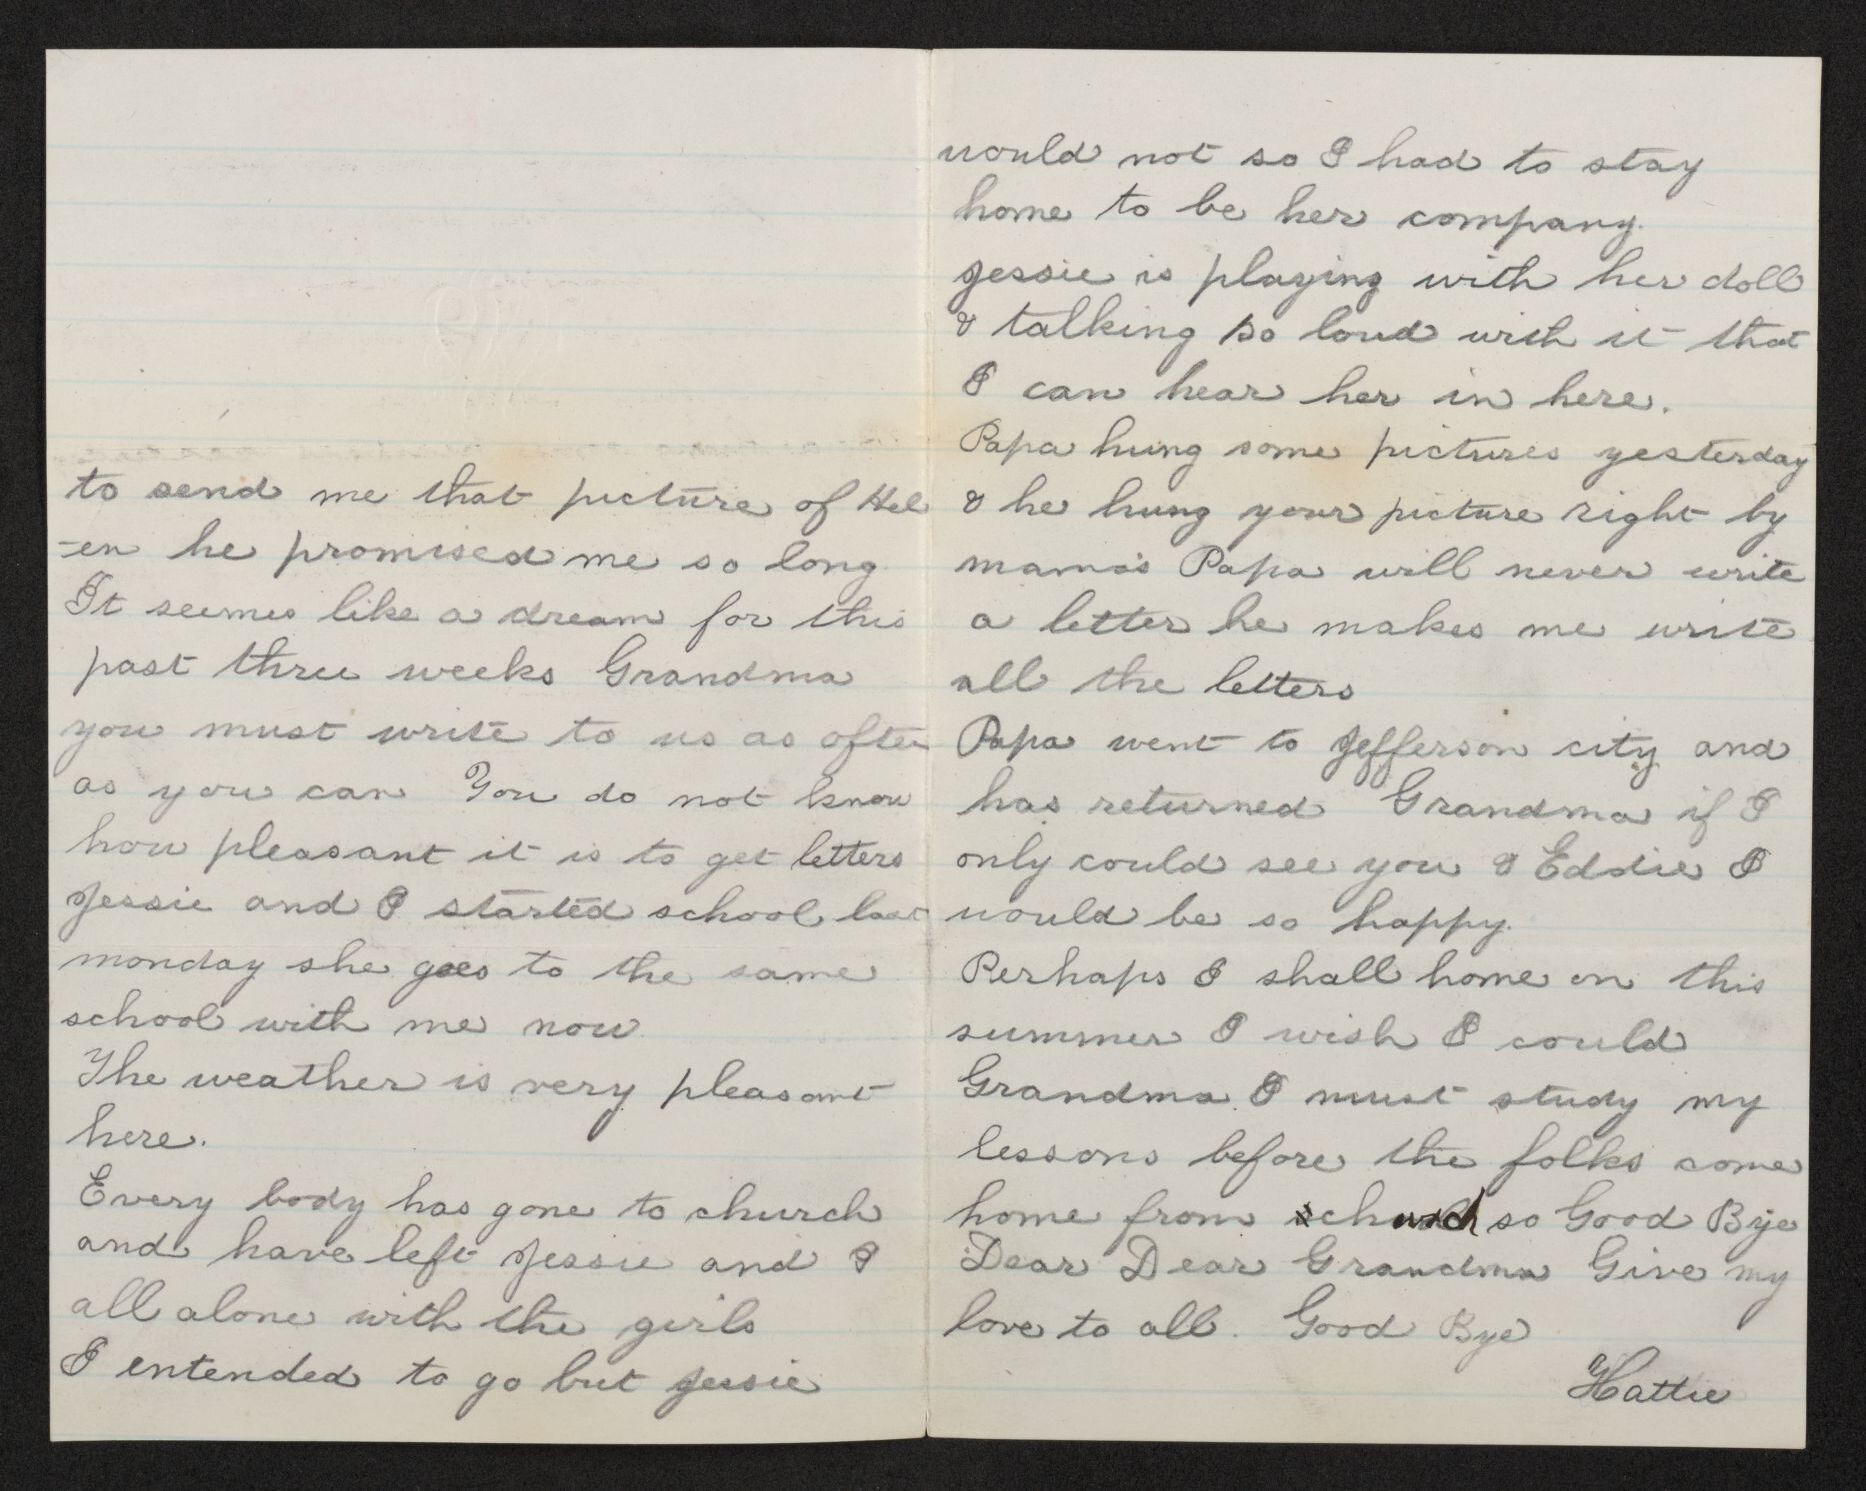 to send me that picture of Hel
-en he promised me so long
It seemes like a dream for this
past three weeks Grandma
you must write to us as often
as you can You do not know
how pleasant it is to get letters
Jessie and I started school last
monday she goes to the same
school with me now
The weather is very pleasant
here.
Every body has gone to church
and have left Jessie and I
all alone with the girls
I entended to go but Jessie
would not so I had to stay
home to be her company.
Jessie is playing with her doll
& talking so loud with it that
I can hear her in here.
Papa hung some pictures yesterday
& he hung your picture right by
mama's Papa will never write
a letter he makes me write
all the letters
Papa went to Jefferson city and
has returned Grandma if I
only could see you & Eddie I
would be so happy.
Perhaps I shall home on this
summer I wish I could
Grandma I must study my
lessons before the folks come
home from church so Good Bye
Dear Dear Grandma Give my
love to all. Good Bye
Hattie